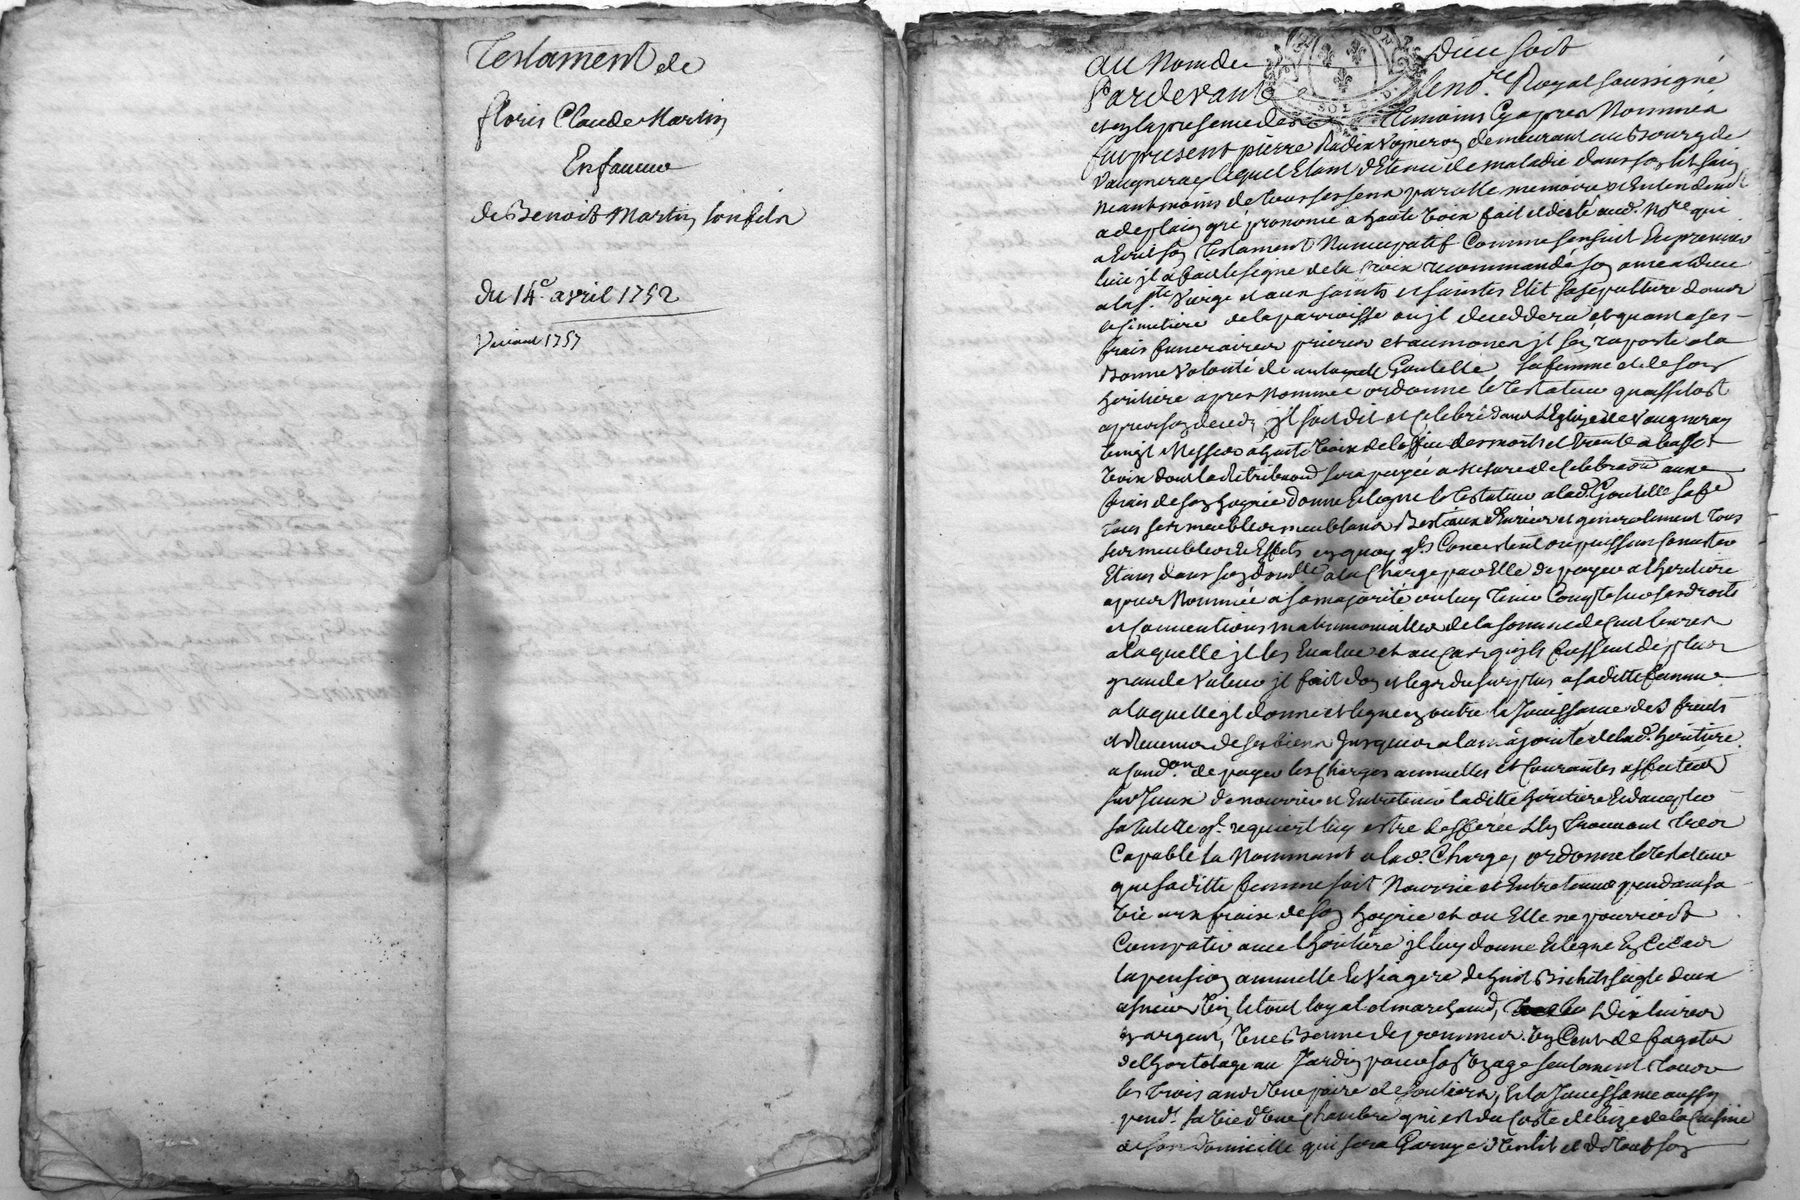 Testament de
floris Claude Martin
En faueur
de Benoit Martin son fils
du 14e. avril 1752
Viuant 1757
SOL
au Nom de Dieu soit
Pardevant le nore. Royal soussigné
et en la presence des temoins Cy apres Nommés
fut present pierre Radix Vigneron demeurant au Bourg de
Vaugneray lequel Etant detenu de maladie dans son lit sain
neantmoins de tous ses sens parolle memoire et Entendemt
a de plain gré prononcé a haute voix fait et dicté aud. Nore qui
a Ecrit son Testament Nuncupatif Comme sensuit En premier
lieu jl a fait le signe de la croix recommandé son ame a dieu
a la ste Vierge et aux saints et saintes Elit sa sepulture dans
le simetiere de la parroisse ou jl decedera et quant a ses
frais funeraires prieres et aumones jl sen raporte a la
Bonne Volonté de Goutelle sa femme et de son
heritiere apres Nommée ordonne le Testateur quaussitost
apres son deced jl soit dit et Celebré dans LEglise de Vaugneray
vingt Messes a haute voix de loffice des morts et trente a basse
voix dont la retribuon sera payée a mesure de Celebraon aux
frais de son hoyrie donne et legue le Testateur a lad. Goutelle sa fe
tous ses meubles meublans Bestiaux denrées et generalement tous
ses meubles et Effets en quoy qls Concistent ou puissent Consister
Etans dans son domlle a la Charge par Elle de payer a lheritiere
apres Nommée a sa majorité ou luy tenir Compte sur ses droits
et Conventions matrimonialles de la somme de livres
a laquelle jl les Evalue et au cas quils fussent de plus
grande Valeur jl fait don et legs du surplus a saditte femme
a laquelle jl donne et legue en outre la Jouissance des fruits
et Revenus de ses biens Jusques a la majorité de lad. heritiere
a condon de payer les Charges annuelles et Courantes affectées
sur Iceux de nourrir et Entretenir laditte heritiere
sa tutelle ql. requiert luy estre defferée
Capable la Nommant a lad. Charge, ordonne le Testateur
que saditte femme soit Nourrie et Entretenue pendant sa
vie aux fraix de son hoyrie et ou Elle ne pourroit
Compatir avec lheritiere jl luy donne et legue En ce cas
la pension annuelle et Viagere de huit Bichets seigle deux
asnées vin le tout loyal et marchand, Dix livres
en argent, une Benne de pommes, un Cent de fagots
de lhortolage au Jardin pour son Vsage seulement tous
les trois ans une paire de souliers, et la Jouissance aussy
pendt. sa vie dune Chambre qui est du Coste de bize de la Cuisine
de son domicille qui sera Garnye dun lit et de tout son